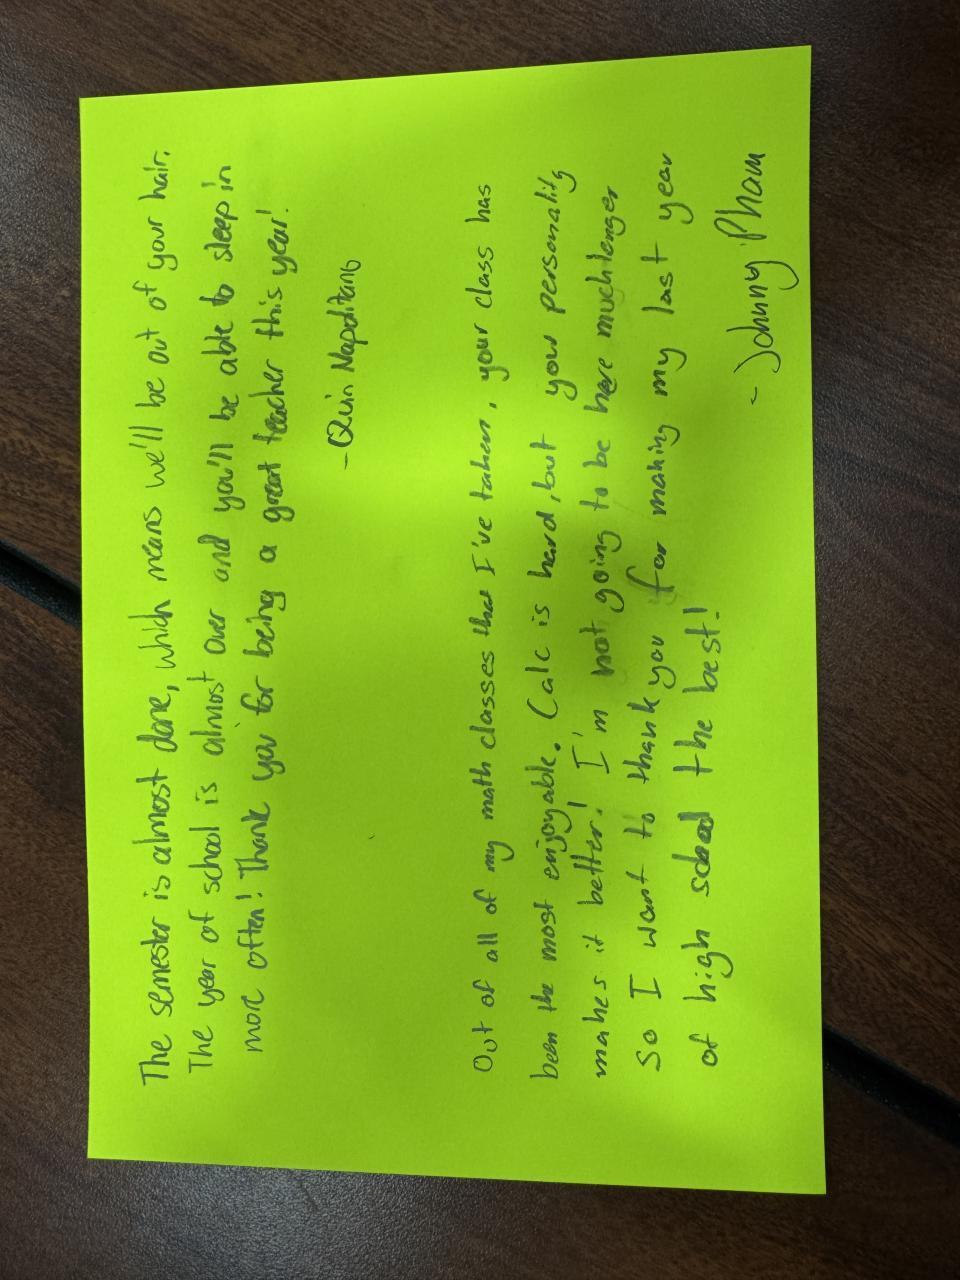 The semester is almost done, which means we'll be out of your hair.
The year of school is almost over and you'll be able to sleep in
more often! Thank you for being a great teacher this year!
-Quin Napolitano
Out of all of my math classes that I've taken, your class has
been the most enjoyable. Calc is hard, but your personality
makes it better! I'm not going to be here much longer
So I want to thank you for making my last year
of high school the best!
- Johnny Pham